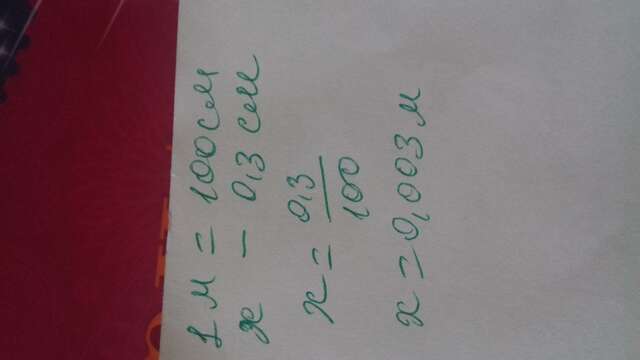 1 м = 100 см
x – 0,3 см
x = 0,3/100
x = 0,003 м